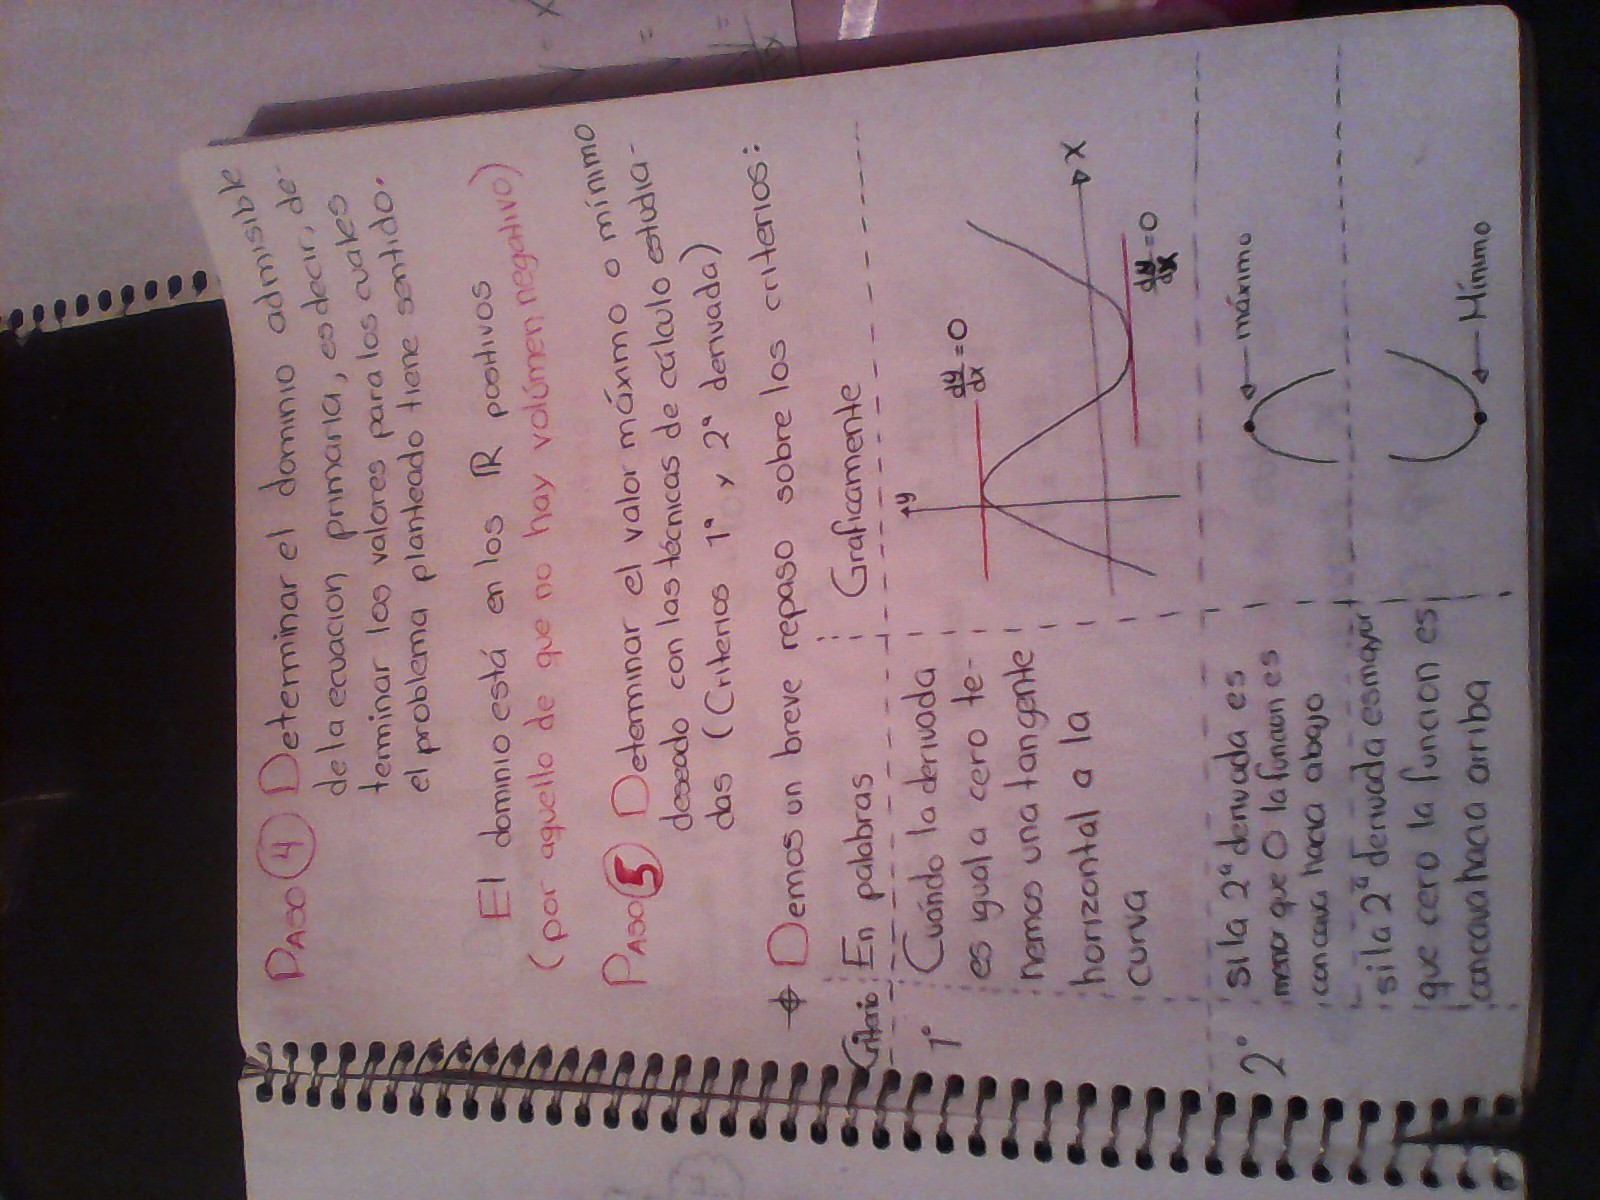 PASO 4 Determinar el dominio admisible
de la ecuacion primaria, es decir, de-
terminar los valores para los cuales
el problema planteado tiene sentido.
El dominio está en los ℝ positivos
(por aquello de que no hay volúmen negativo)
PASO 5 Determinar el valor máximo o mínimo
deseado con las técnicas de cálculo estudia-
das (Criterios 1ª y 2ª derivada)
Demos un breve repaso sobre los criterios:
Criterio En palabras Graficamente
1° Cuándo la derivada
es igual a cero te-
nemos una tangente
horizontal a la
curva
y
dy/dx = 0
x
dy/dx = 0
2° si la 2ª derivada es
menor que 0 la funcion es
concava hacia abajo
máximo
si la 2ª derivada es mayor
que cero la funcion es
concava hacia arriba
Mínimo
x
=
=